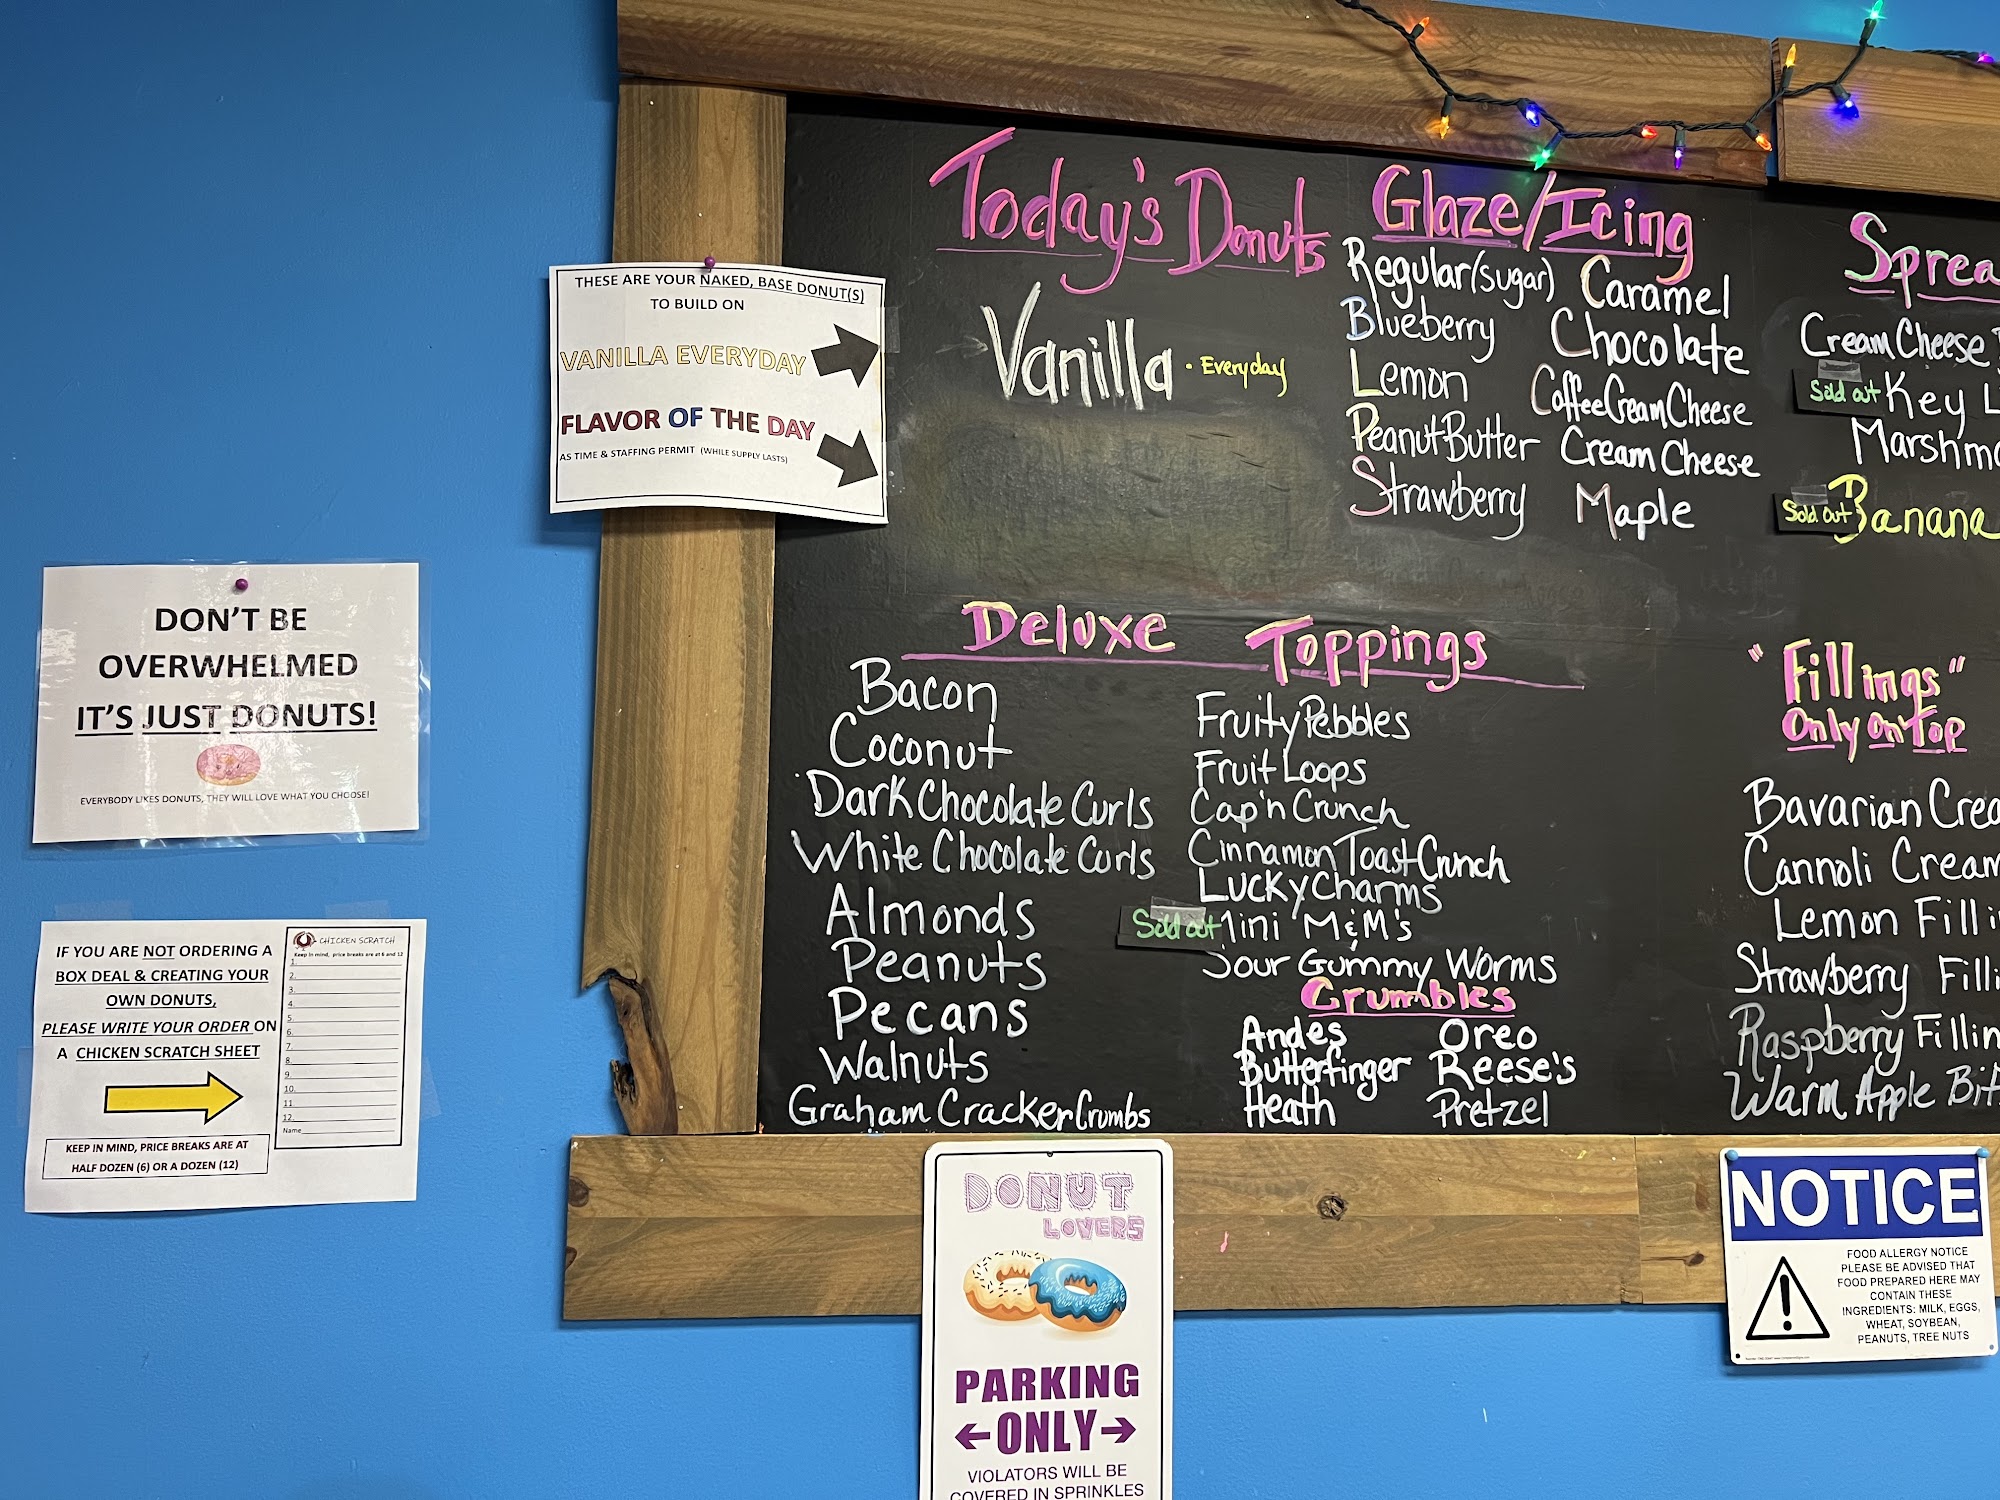 THESE ARE YOUR NAKED, BASE DONUT(S)
TO BUILD ON
VANILLA EVERYDAY
FLAVOR OF THE DAY
AS TIME & STAFFING PERMIT (WHILE SUPPLY LASTS)
DON'T BE
OVERWHELMED
IT'S JUST DONUTS!
EVERYBODY LIKES DONUTS, THEY WILL LOVE WHAT YOU CHOOSE!
IF YOU ARE NOT ORDERING A
BOX DEAL & CREATING YOUR
OWN DONUTS,
PLEASE WRITE YOUR ORDER ON
A CHICKEN SCRATCH SHEET
KEEP IN MIND, PRICE BREAKS ARE AT
HALF DOZEN (6) OR A DOZEN (12)
CHICKEN SCRATCH
Keep in mind, price breaks are at 6 and 12
1.
2.
3.
4.
5.
6.
7.
8.
9.
10.
11.
12.
Name
Today's Donuts
Vanilla • Everyday
Glaze/Icing
Regular(sugar) Caramel
Blueberry Chocolate
Lemon Coffee Cream Cheese
Peanut Butter Cream Cheese
Strawberry Maple
Sprea
Cream Cheese
Sold out Key L
Marshm
Sold out Banana
Deluxe Toppings
Bacon
Coconut
Dark Chocolate Curls
White Chocolate Curls
Almonds
Peanuts
Pecans
Walnuts
Graham Cracker Crumbs
Fruity Pebbles
Fruit Loops
Cap'n Crunch
Cinnamon Toast Crunch
Lucky Charms
Sold out Mini M&M's
Sour Gummy Worms
Crumbles
Andes Oreo
Butterfinger Reese's
Heath Pretzel
"Fillings"
Only on Top
Bavarian Crea
Cannoli Cream
Lemon Filli
Strawberry Filli
Raspberry Fillin
Warm Apple Bit
DONUT
LOVERS
PARKING
ONLY
VIOLATORS WILL BE
COVERED IN SPRINKLES
NOTICE
FOOD ALLERGY NOTICE
PLEASE BE ADVISED THAT
FOOD PREPARED HERE MAY
CONTAIN THESE
INGREDIENTS: MILK, EGGS,
WHEAT, SOYBEAN,
PEANUTS, TREE NUTS